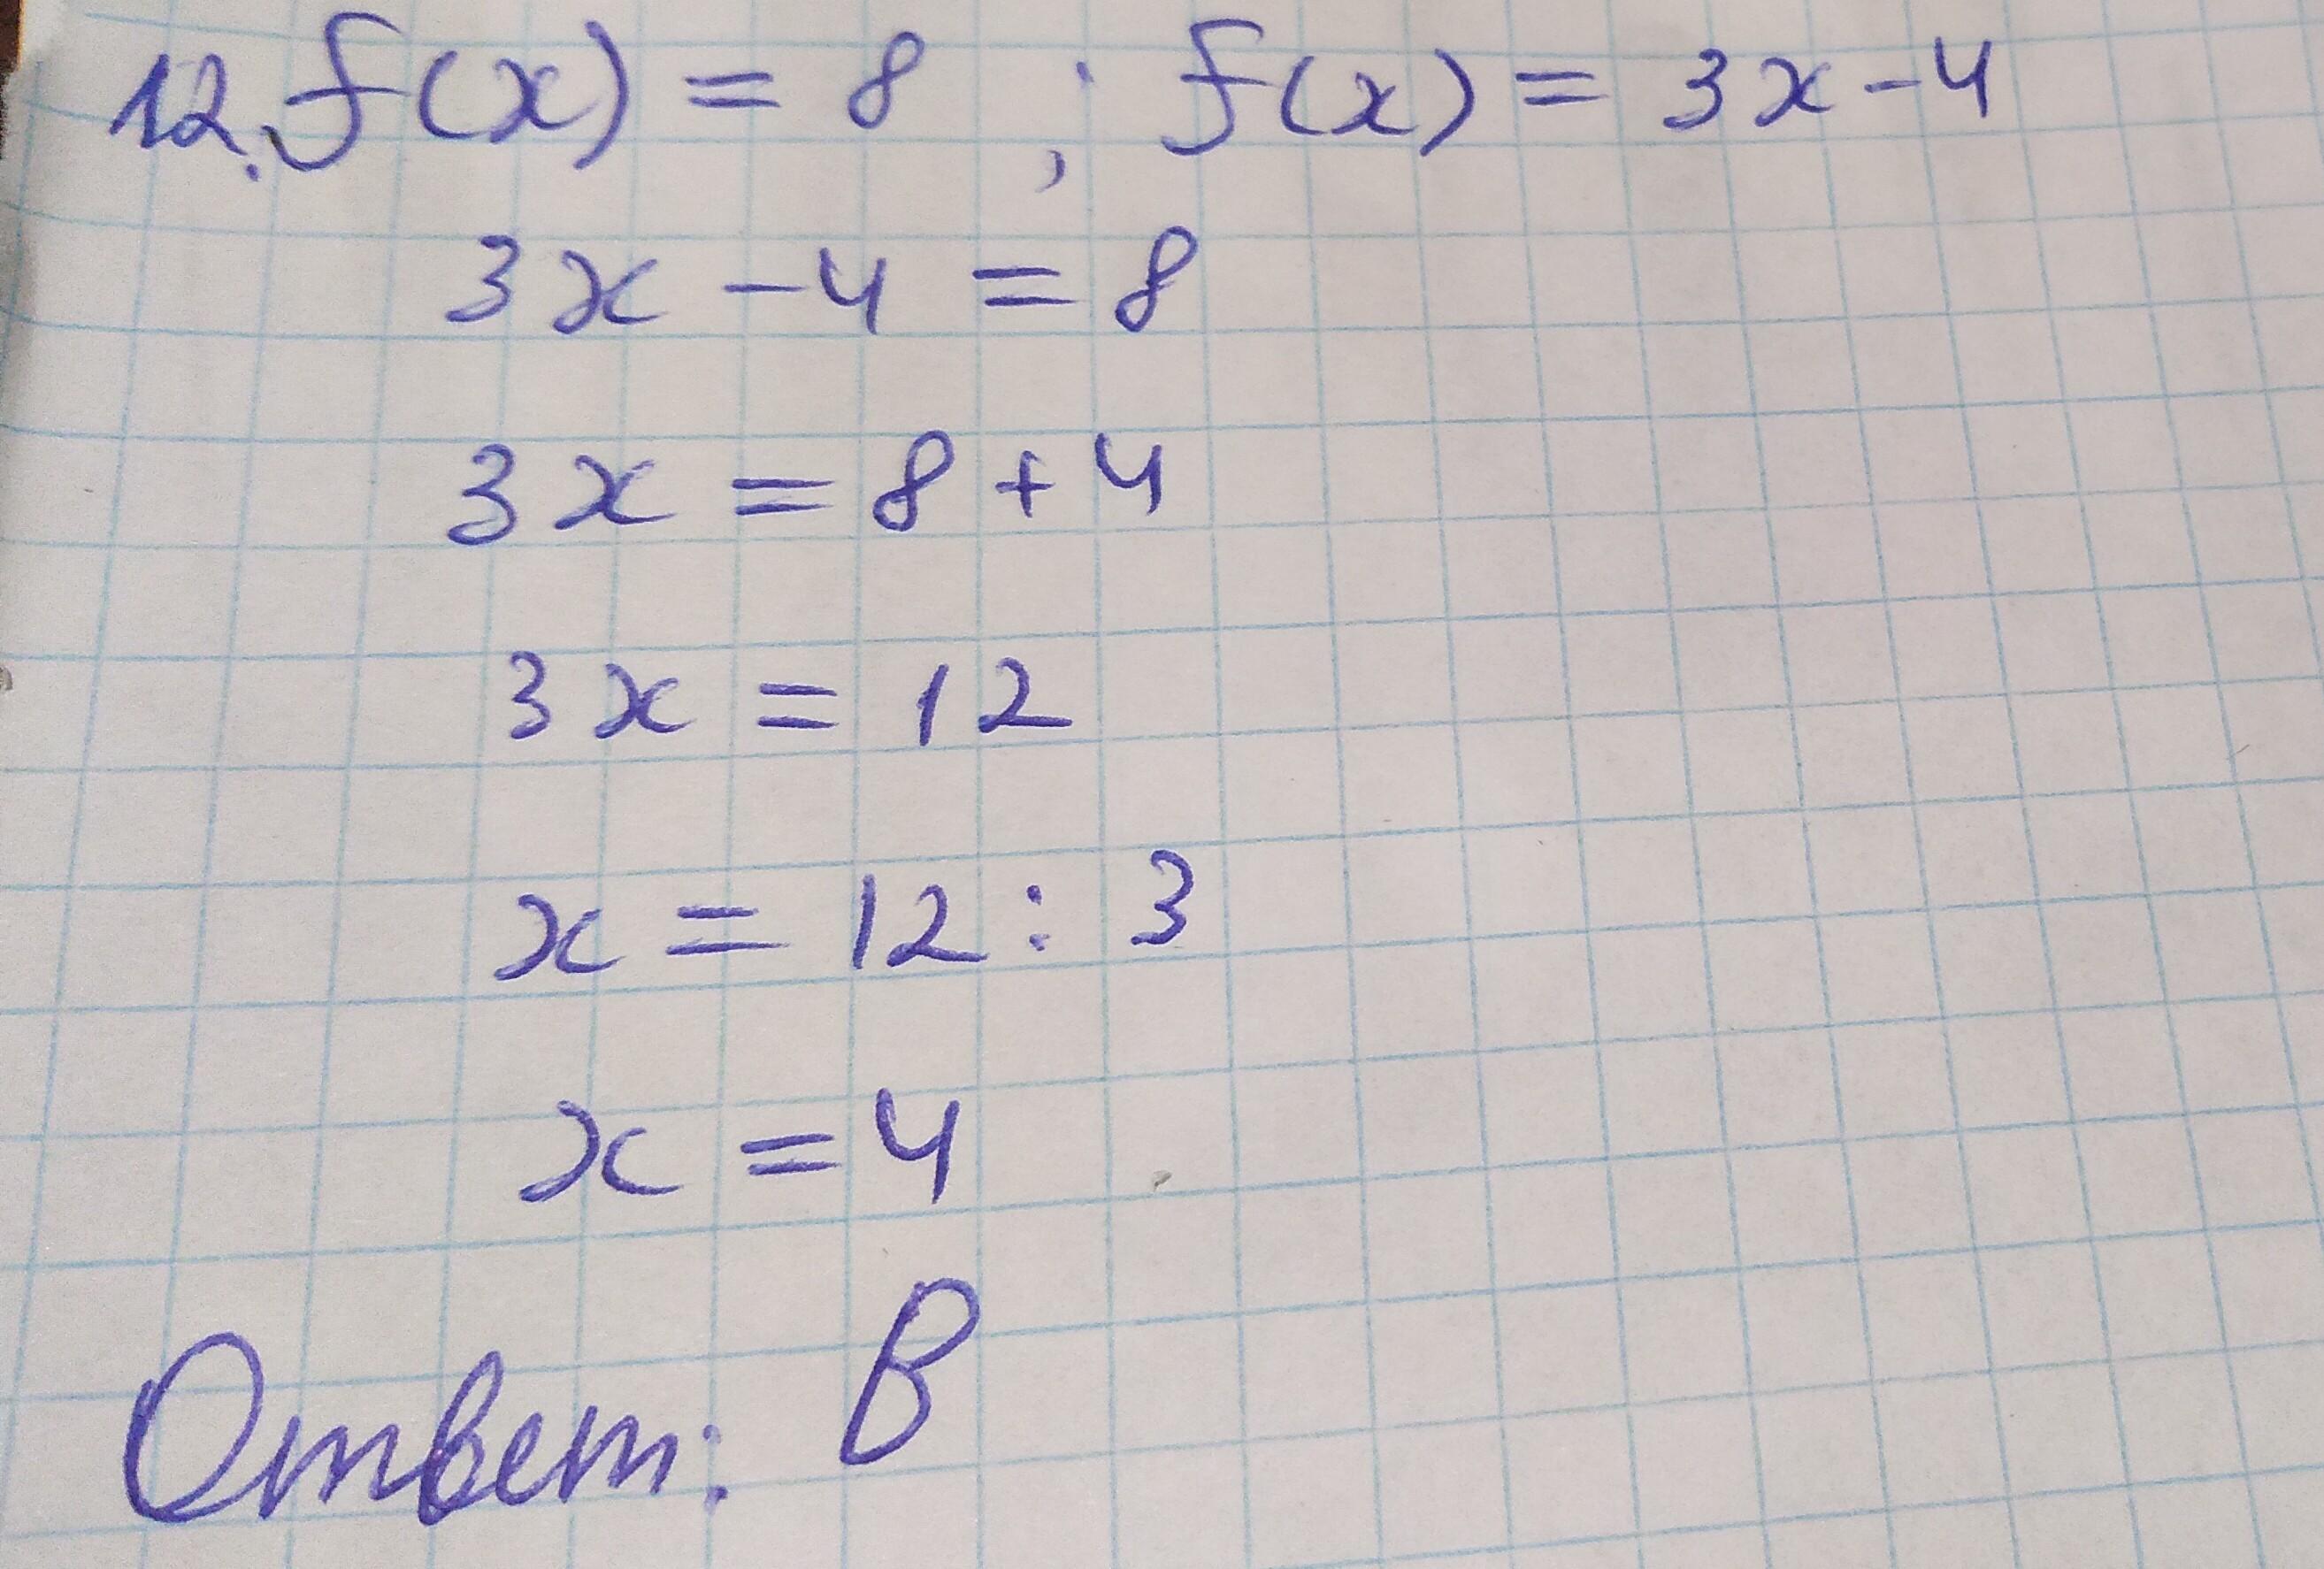 12. f(x) = 8 ; f(x) = 3x - 4
3x - 4 = 8
3x = 8 + 4
3x = 12
x = 12 : 3
x = 4
Ответ: В